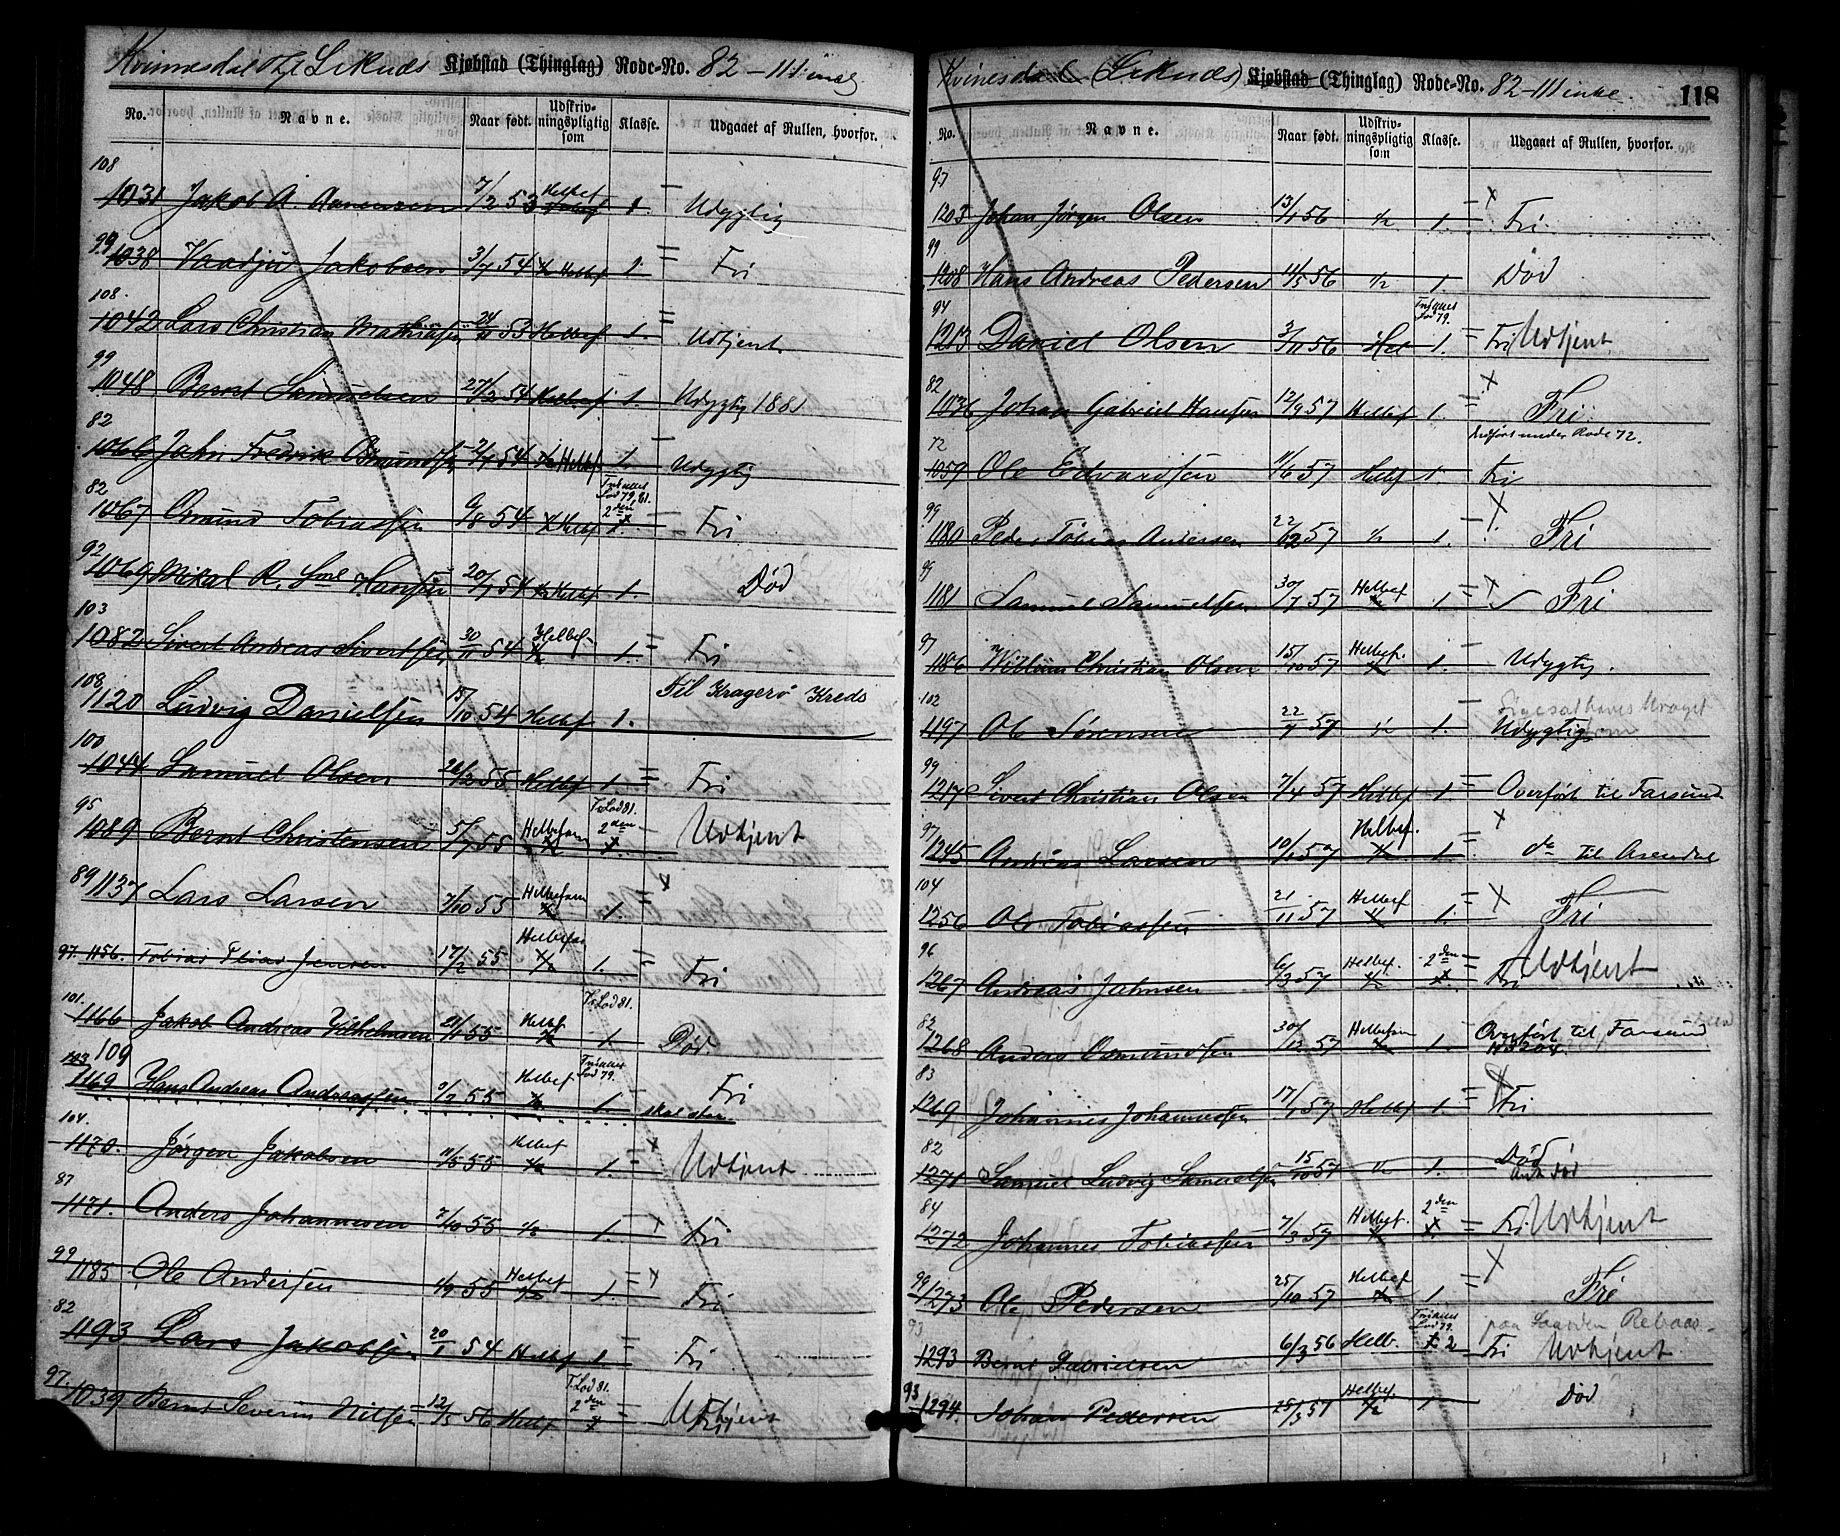 Kjøbstad (Thinglag) Rode-No. 82-111 inkl.
No. Navne. Naar født. Udskrivningspligtig som Klasse. Udgaaet af Rullen, hvorfor.
108
1031 Jakob A. Aanensen 7/2 53 Helbef 1. Udygtig
99
1038 Jakobsen 3/7 54 Helbef 1. Fri
108.
1042 Lars Christian Mathiassen 53 Helbef. 1. Udtjent.
99
1048 Bernt Samuelsen 27/2 54 Helbef 1. Udygtig 1881
82
1066 John Fredrik Omundsen 54 1/2 Helbef 1. Udygtig
82
Lod 79, 81.
1067 Omund Tobiassen 6/8 54 Helbef 2den Fri
92
1069 Mikal R. Hansen 20/7 54 Helbef 1. Død
103
1082 Sivert Andreas Sivertsen 30/11 54 Helbef 1/2 1. Fri
108
1120 Ludvig Danielsen 15/10 54 Helbef 1. Til Kragerø Kreds
100
1044 Samuel Olsen 26/2 55 Helbef 1. Fri
95
1089 Bernt Christensen 5/7 55 Helbefaren Lod 81. 2den Udtjent
89
1137 Lars Larsen 7/10 55 Helbefaren 1. x
97. 1156. Tobias Jensen 17/2 55 Helbefar 1/2 1. Fri
101.
1166 Jakob Andreas Vilhelmsen 55 Helbef Lod 81. 1 Død.
103 109
1169 Hans Andreas Andreassen 9/2 55 Helbef Lod 79. 1. Fri
104.
1170. Jørgen Jakobsen 11/5 55 Helbef 1/2 1. x Udtjent
87
1171. Anders Johannesen 7/10 55 1/2 1. Fri
99
1185 Ole Andersen 4/9 55 Helbef 1/2 1. Fri
82
1193 Lars Jakobsen 20/1 54 Helbef 1. Fri
97.
1039 Bernt Severin Nilsen 12/3 56 Helbf Lod 81. 2den Udtjent Fri
Kvinesdal (Lister) Kjøbstad (Thinglag) Rode-No. 82-111 inkl. 118
No. Navne. Naar født. Udskrivningspligtig som Klasse. Udgaaet af Rullen, hvorfor.
97
1203 Johan Jørgen Olsen 13/1 56 1/2 1. x Fri
99
1208 Hans Andreas Pedersen 14/5 56 1/2 1. Død
94
Lod 79.
1213 Daniel Olsen 3/11 56 Hel 1. Fri Udtjent
82
1036 Johan Gabriel Hansen 12/9 57 Helbef 1. x Fri
Indført under Rode 72.
72
1059 Ole Edvardsen 11/6 57 Helbf 1 Fri
99
1180 Peder Tobias Andersen 22/12 57 1/2 1. Fri
99
1181 Samuel Samuelsen 30/7 57 Helbef 1 x Fri
97
1186 William Christian Olsen 15/10 57 Helbef. 1. Udygtig.
102
1197 Ole Sørensen 22/7 57 1/2 1. Udygtig
99
1217 Sivert Christian Olsen 7/4 57 Helbef 1 Overført til Farsund
97
1245 Andreas Larsen 10/1 57 Helbef. 1 x do til Arendal
104
1256 Ole Tobiassen 21/11 57 Helbef 1. x Fri
96
1267 Andreas Jahnsen 6/3 57 Helbef. 2den Fri Udtjent
82
1268 Anders Omundsen 30/12 57 Helbefaren 1. Overført til Farsund
83
1269 Johannes Johannessen 17/1 57 Helbf 1. Fri
82
1271 Samuel Ludvig Samuelsen 15/10 57 1/2 1. Død
84
1272 Johannes Tobiassen 7/3 57 Helbef. 2den Fri Udtjent
99
1273 Ole Pedersen 25/10 57 Helbef 1 x Fri
93
Lod 79.
1293 Bernt Gabrielsen 6/3 56 Helb. 2 Fri Udtjent
93
1294. Johan Pedersen 25/3 57 Helbef. 1/2 1 Død